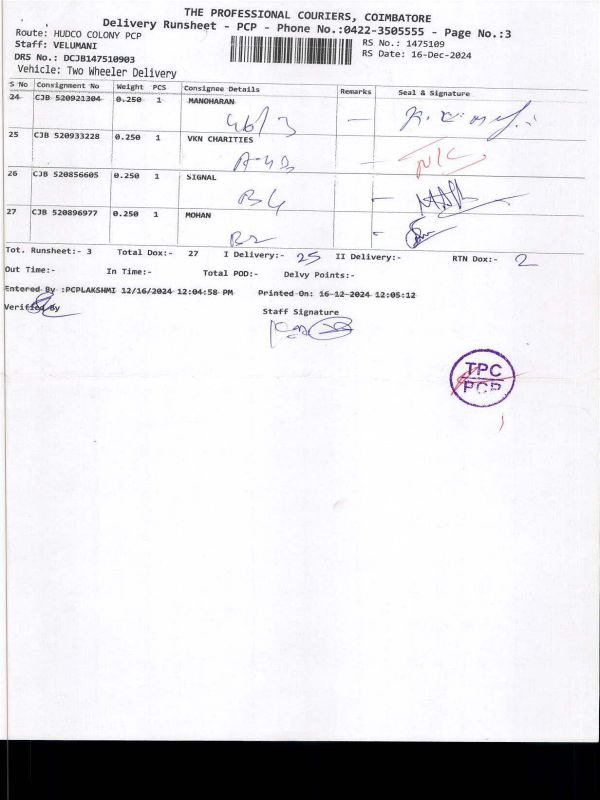 THE PROFESSIONAL COURIERS, COIMBATORE
Delivery Runsheet - PCP - Phone No.:0422-3505555 - Page No.:3
Route: HUDCO COLONY PCP
RS No.: 1475109
Staff: VELUMANI
RS Date: 16-Dec-2024
DRS No.: DCJB147510903
Vehicle: Two Wheeler Delivery
S No Consignment No Weight PCS Consignee Details Remarks Seal & Signature
24 CJB 520921304 0.250 1 MANOHARAN
46/3 —
25 CJB 520933228 0.250 1 VKN CHARITIES
A-43 — N/C
26 CJB 520856605 0.250 1 SIGNAL
B4 —
27 CJB 520896977 0.250 1 MOHAN
B2 -
Tot. Runsheet:- 3 Total Dox:- 27 I Delivery:- 25 II Delivery:- RTN Dox:- 2
Out Time:- In Time:- Total POD:- Delvy Points:-
Entered By :PCPLAKSHMI 12/16/2024 12:04:58 PM Printed On: 16-12-2024 12:05:12
Verified By
Staff Signature
TPC
PCP